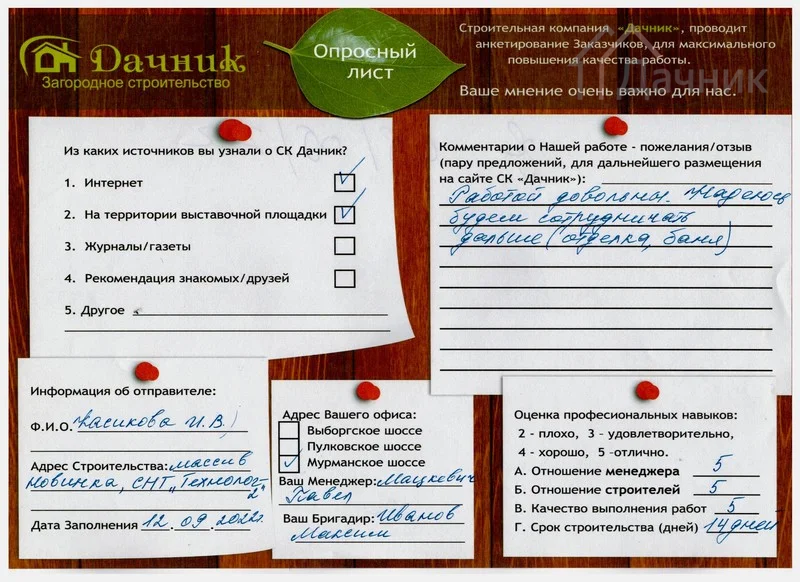 Дачник
Загородное строительство
Опросный
лист
Строительная компания «Дачник», проводит
анкетирование Заказчиков, для максимального
повышения качества работы.
Ваше мнение очень важно для нас.
Дачник
Из каких источников вы узнали о СК Дачник?
1. Интернет
2. На территории выставочной площадки
3. Журналы/газеты
4. Рекомендация знакомых/друзей
5. Другое
Комментарии о Нашей работе - пожелания/отзыв
(пару предложений, для дальнейшего размещения
на сайте СК «Дачник»):
Работой довольны. Надеюсь
будем сотрудничать
дальше (отделка, баня)
Информация об отправителе:
Ф.И.О. Касикова И.В.
Адрес Строительства: массив
Новинка, СНТ „Технолог-
2"
Дата Заполнения 12.09.2022г.
Адрес Вашего офиса:
Выборгское шоссе
Пулковское шоссе
Мурманское шоссе
Ваш Менеджер: Мацкевич
Павел
Ваш Бригадир: Иванов
Максим
Оценка професиональных навыков:
2 - плохо, 3 - удовлетворительно,
4 - хорошо, 5 -отлично.
А. Отношение менеджера 5
Б. Отношение строителей 5
В. Качество выполнения работ 5
Г. Срок строительства (дней) 14 дней